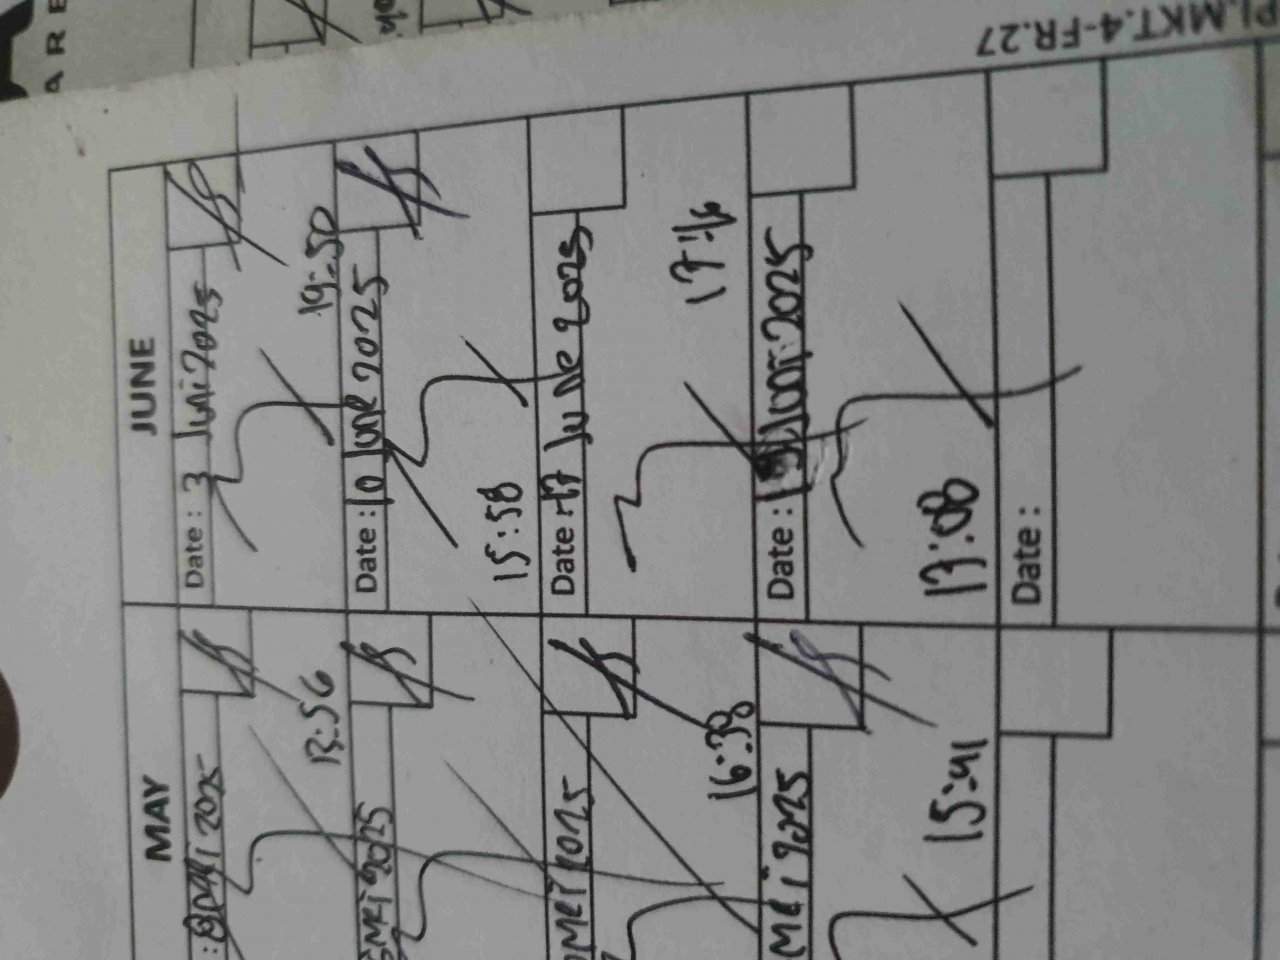 PI.MKT.4-FR.27
ARE
MAY
Mei 2025
13:56
Mei 2025
Mei 2025
16:38
Mei 2025
15:41
JUNE
Date : 3 Juni 2025
19:50
Date : 10 June 2025
15:58
Date : 17 June 2025
Date : Juni 2025
13:08
Date :